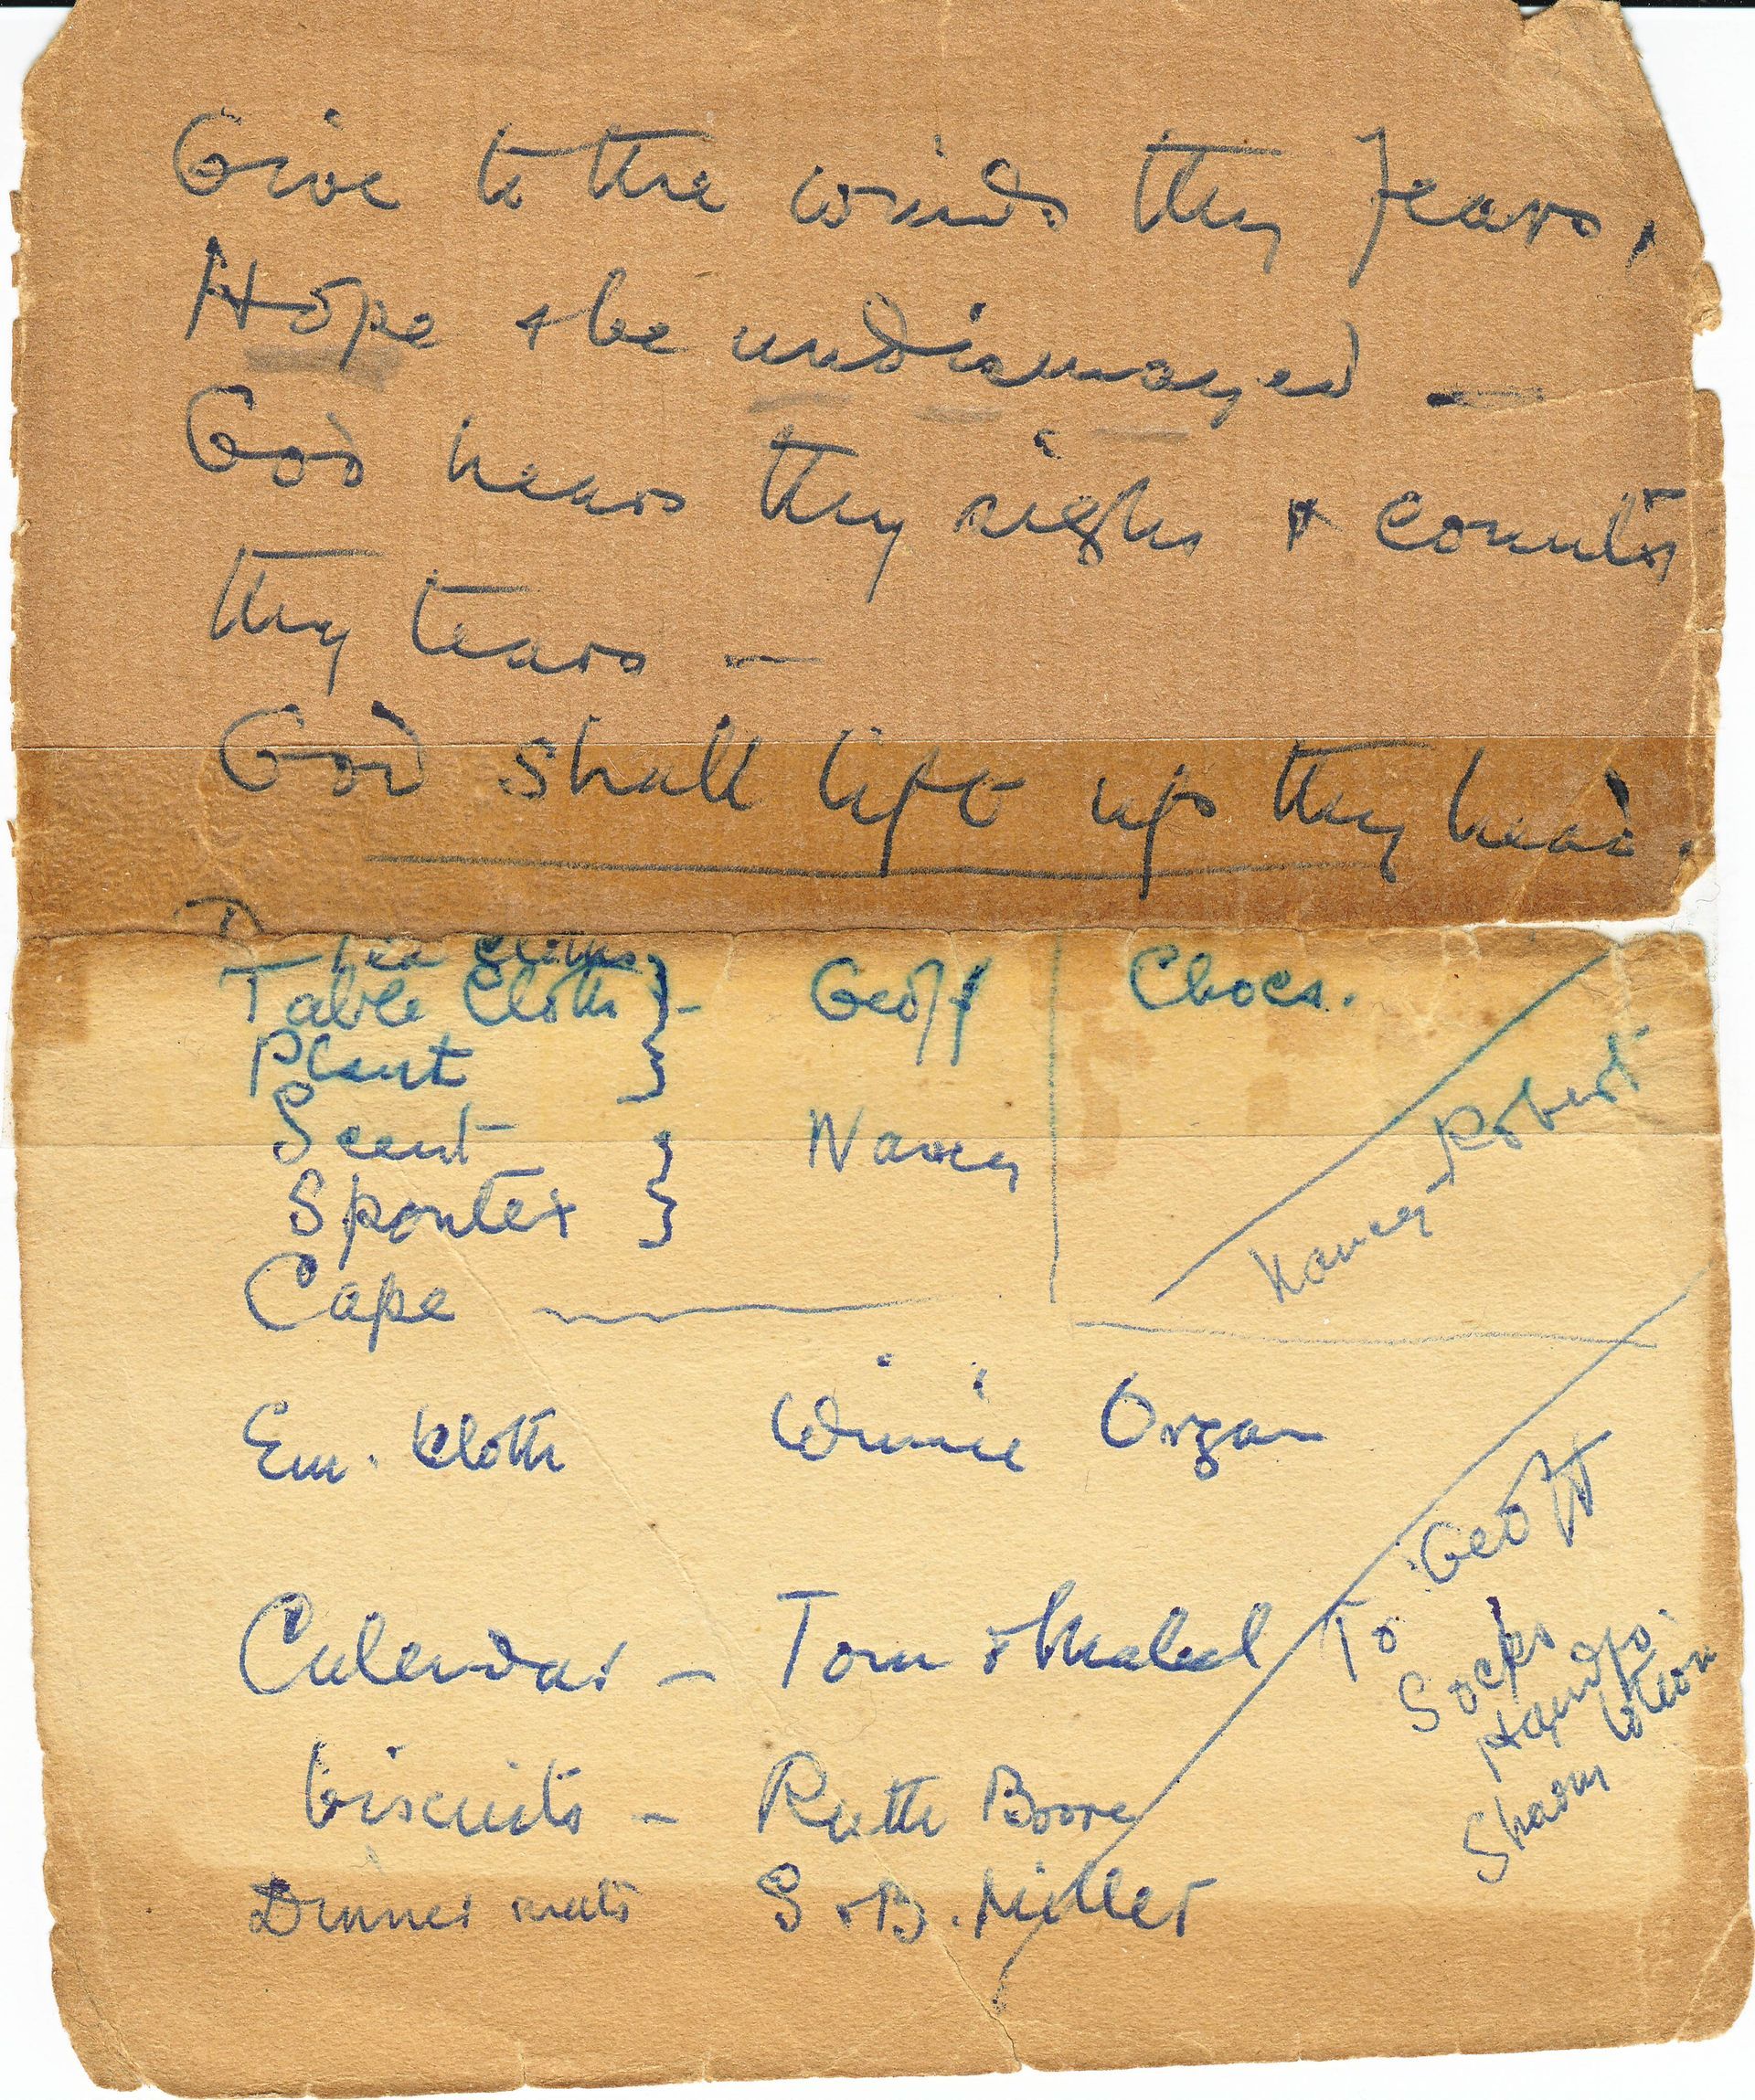 Give to the winds thy fears,
Hope & be undismayed —
God hears thy sighs & counts
thy tears —
God shall lift up thy head.
Tea Cloths
Table Cloth } - Geoff
Plant }
Scent } Nancy
Spontex }
Cape
Chocs.
Nancy Robert
Em. Cloth Winnie Organ
Calendar - Tom & Mabel
biscuits - Ruth Boore
Dinner mats S & B. Miller
To Geoff
Socks
Hands
lotion